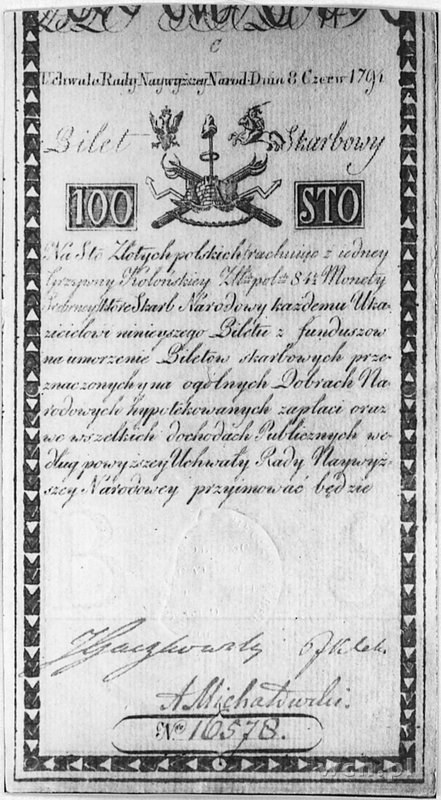 C
Uchwała Rady Naywyższey Narod. Dnia 8 Czerw 1794
Bilet Skarbowy
100 STO
Na Sto Złotych polskich rachuiąc z iedney
Grzywny Kolońskiey Złł. pol. 84½ Monety
Srebrney, które Skarb Narodowy każdemu Oka-
zicielowi ninieyszego Biletu z funduszow
na umorzenie Biletów skarbowych prze-
znaczonych y na ogólnych Dobrach Na-
rodowych hypotekowanych zapłaci oraz
we wszelkich dochodach Publicznych we-
dług powyższey Uchwały Rady Naywyż-
szey Narodowey przyimować będzie
A Michałowski.
No 16578.